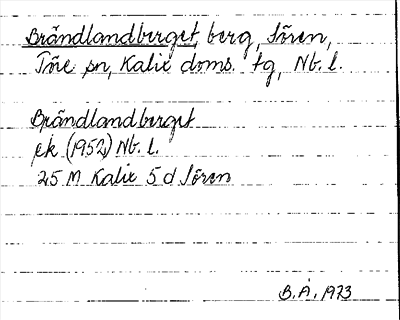 Brändlandberget, berg, Sören,
Töre sn, Kalix doms. tg, Nb. l.
Brändlandberget
ek (1952) Nb. l.
25 M Kalix 5 d Sören
B.Å. 1973